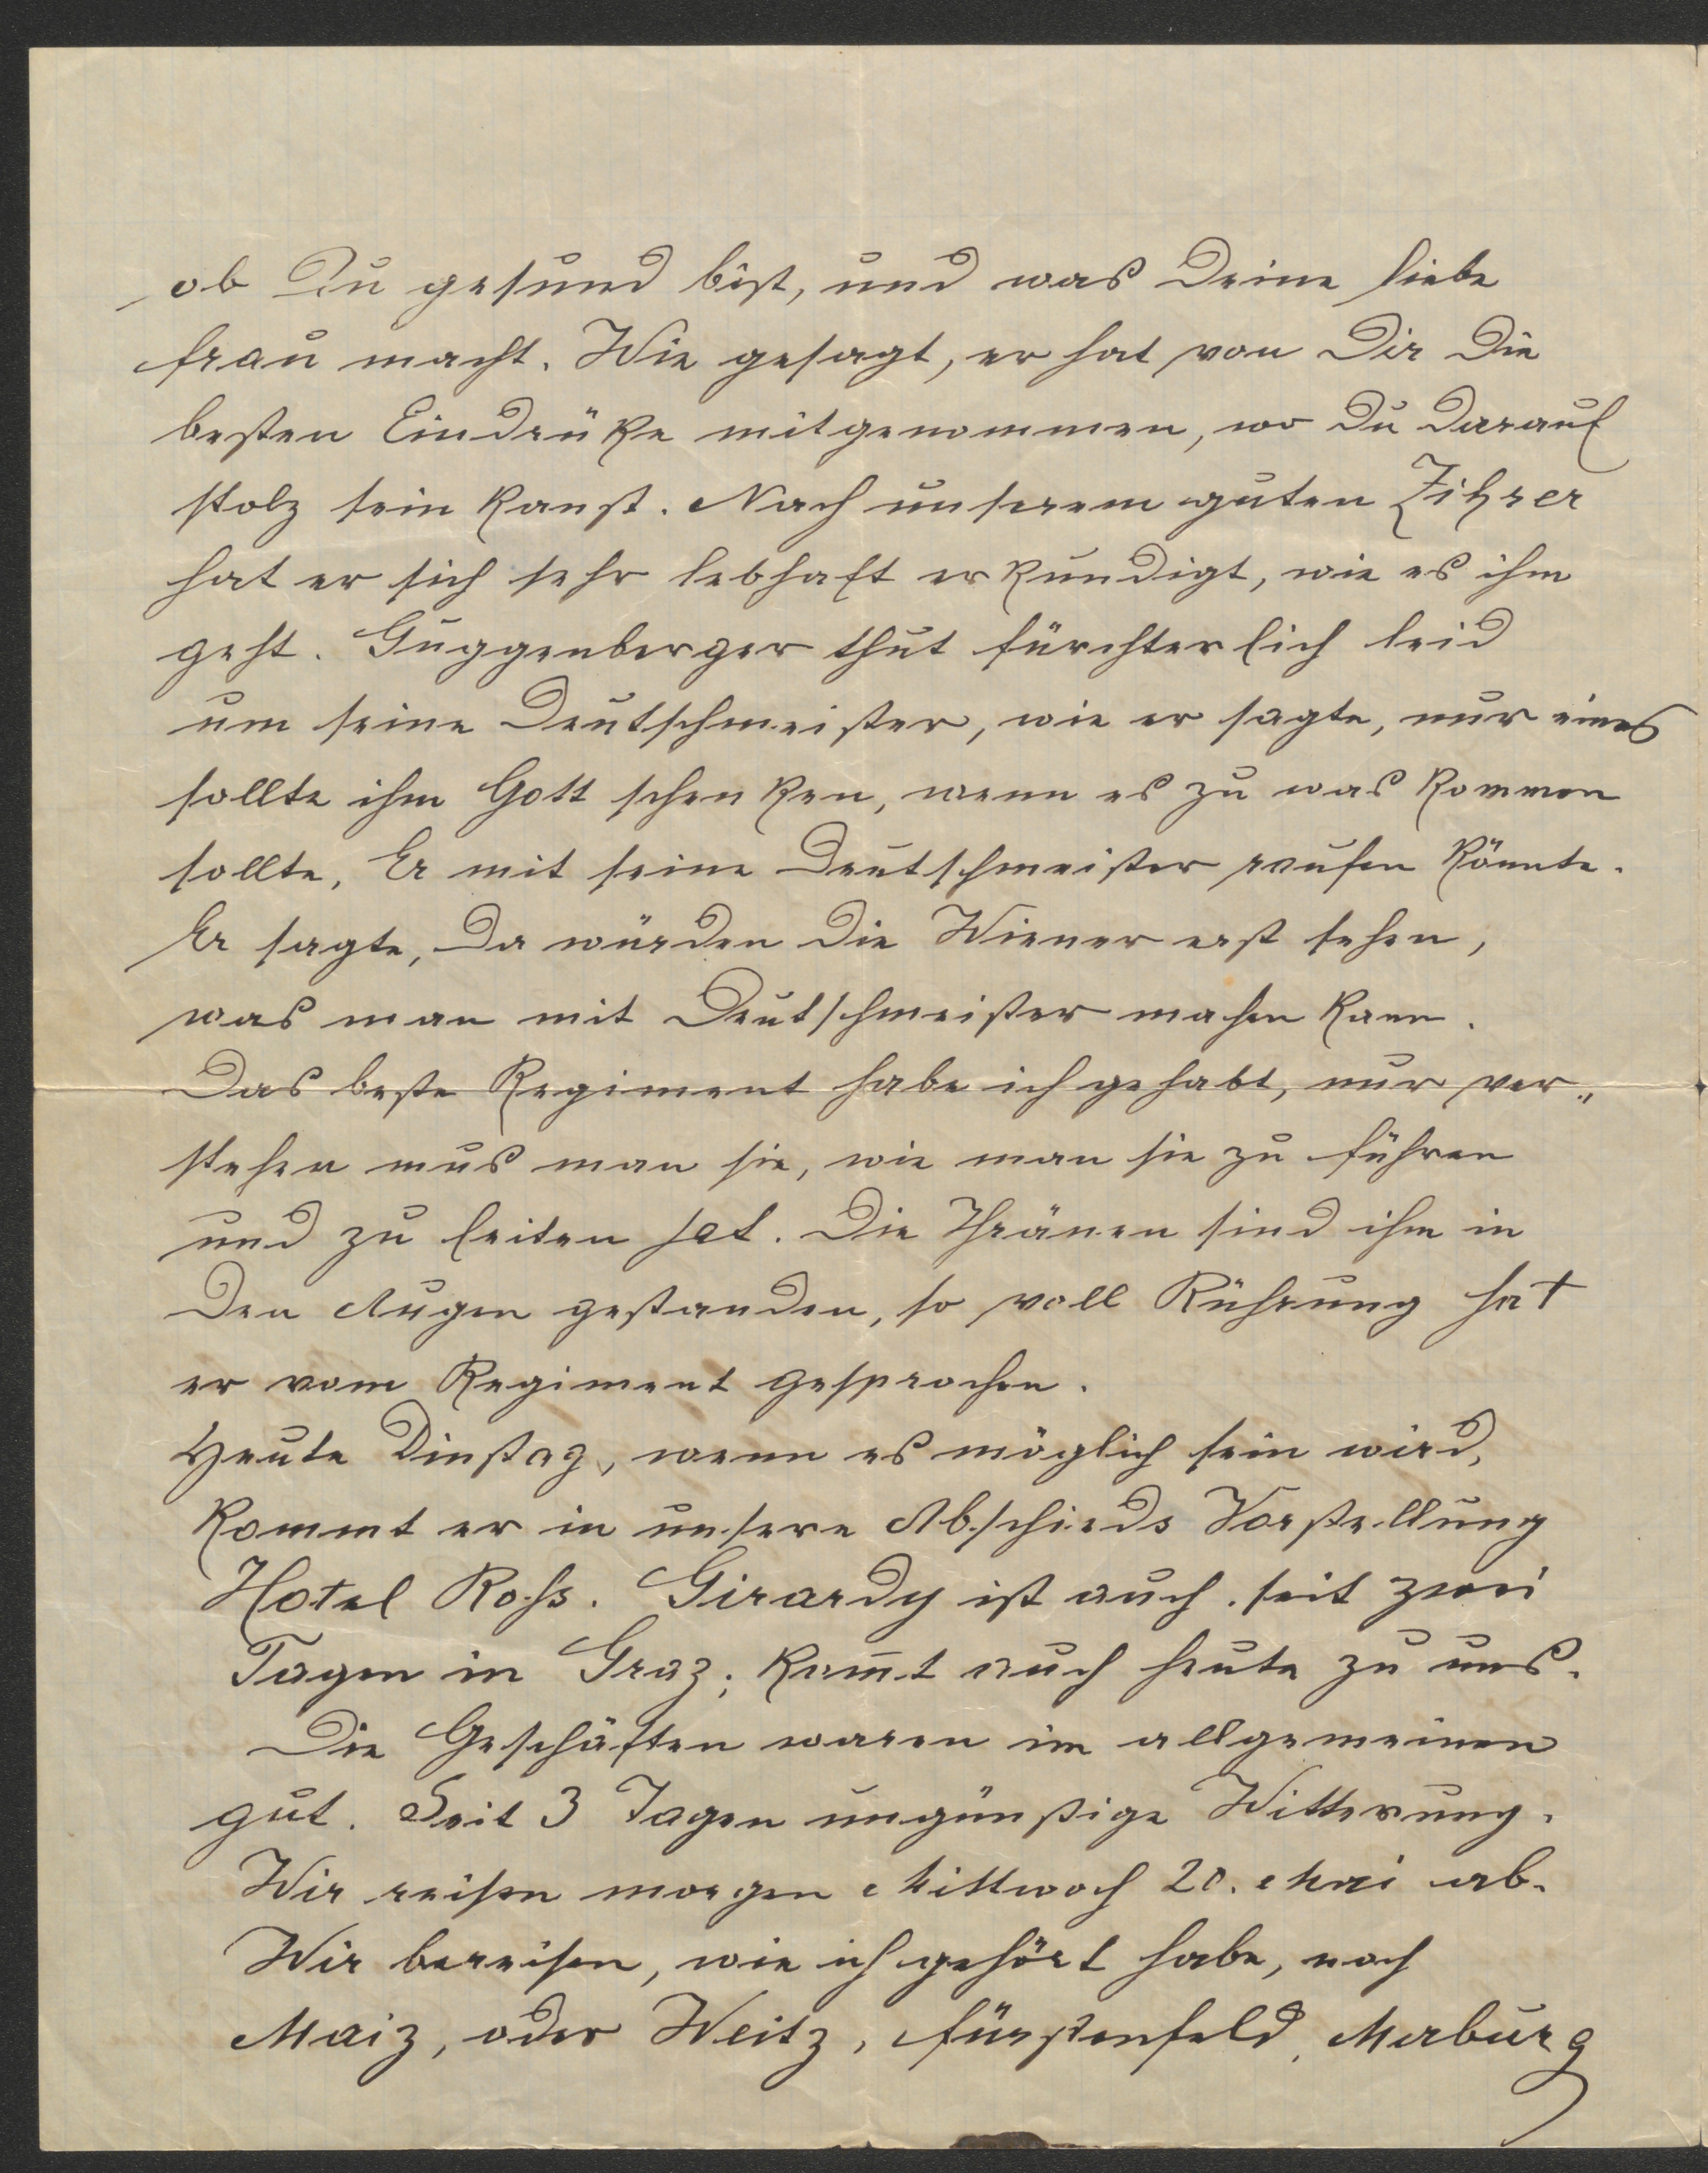 ob Du gesund bist, und was Deine liebe
frau macht. Wie gesagt, er hat von Dir die
besten Eindrüke mitgenommen, wo Du darauf
stolz sein kanst. Nach unserem guten Zihrer
hat er sich sehr lebhaft erkundigt, wie es ihm
geht. Guggenberger thut fürchterlich leid
um seine Deutschmeister, wie er sagte, nur eines
sollte ihm Gott schenken, wenn es zu was kommen
sollte, Er mit seine Deutschmeister raufen könnte.
Er sagte, da würden die Wiener erst sehen,
was man mit Deutschmeister machen kann.
Das beste Regiment habe ich gehabt, nur ver„
stehen mus man sie, wie man sie zu führen
und zu leiten hat. Die Thränen sind ihm in
den Augen gestanden, so voll Rührung hat
er vom Regiment gesprochen.
Heute Dinstag, wenn es möglich sein wird,
kommt er in unsere Abschieds Vorstellung
Hotel Ross. Girardy ist auch seit zwei
Tagen in Graz; kom̅t auch heute zu uns.
Die Geschäften waren im allgemeinen
gut. Seit 3 Tagen ungünstige Witterung.
Wir reisen morgen Mittwoch 20. Mai ab.
Wir bereisen, wie ich gehört habe, noch
Maiz, oder Weitz, fürstenfeld, Marburg